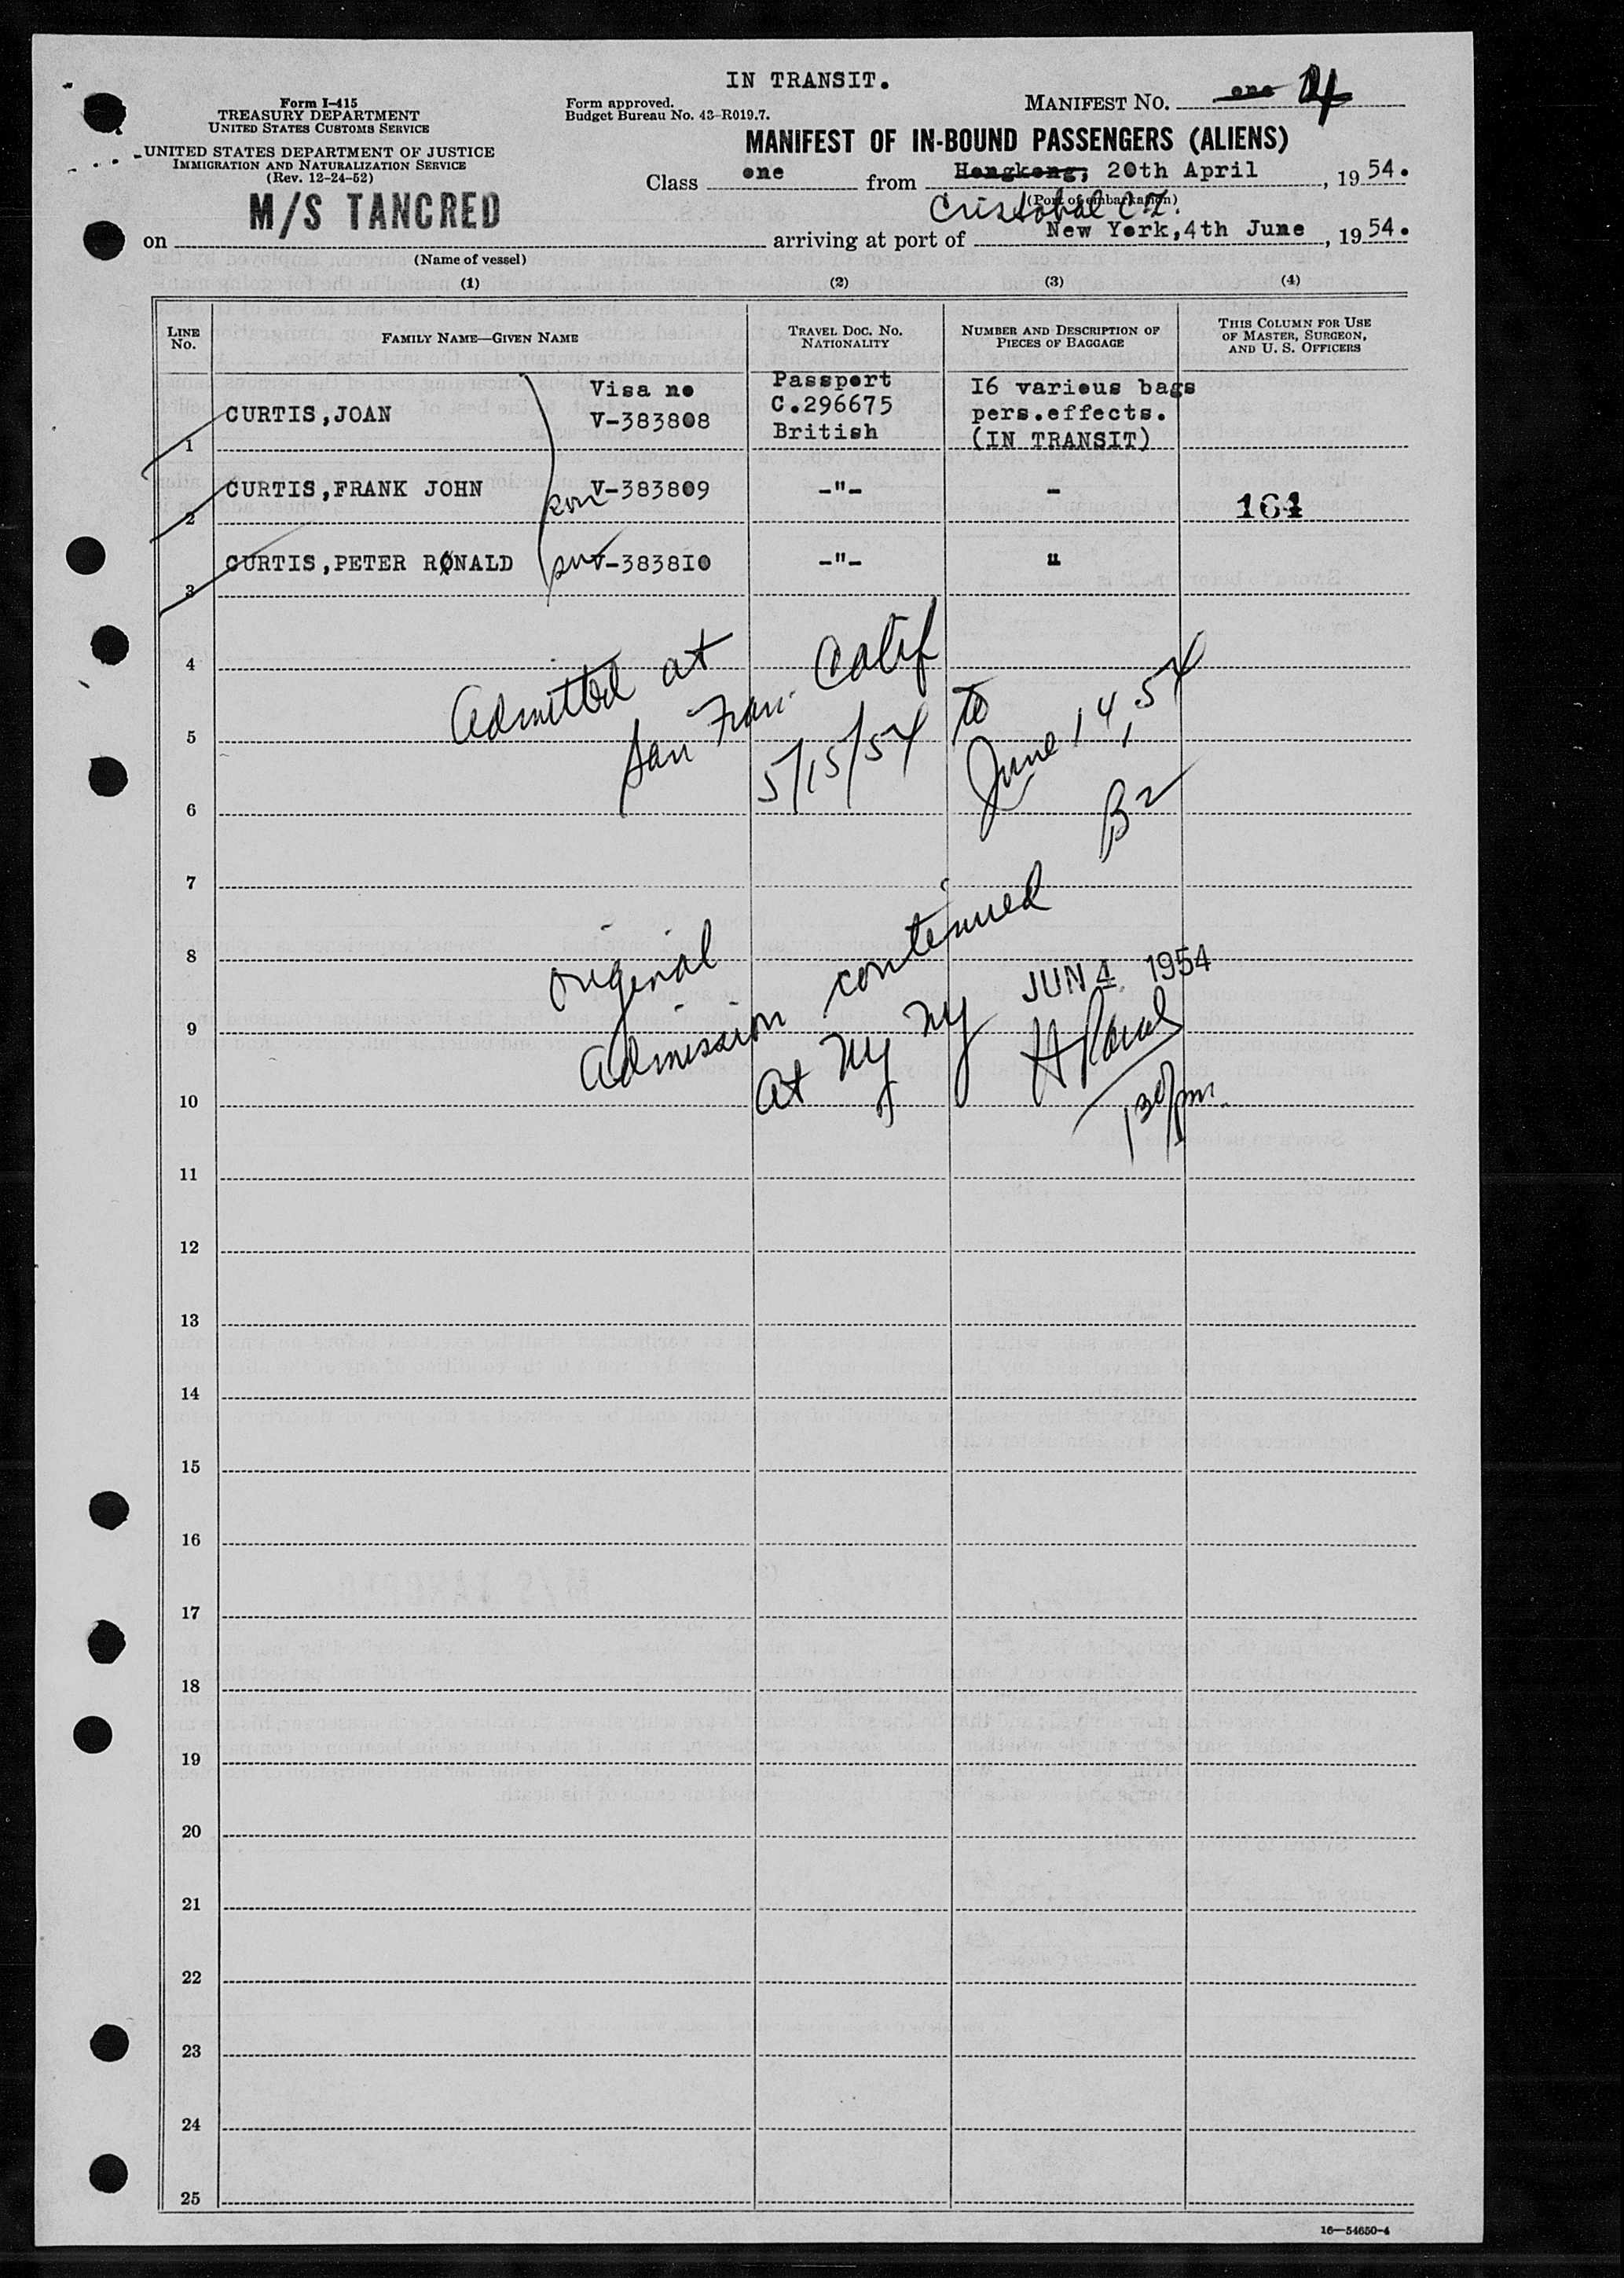 IN TRANSIT.
Form I-415
TREASURY DEPARTMENT
UNITED STATES CUSTOMS SERVICE
UNITED STATES DEPARTMENT OF JUSTICE
IMMIGRATION AND NATURALIZATION SERVICE
(Rev. 12-24-52)
Form approved.
Budget Bureau No. 43-R019.7.
MANIFEST NO. one 4
MANIFEST OF IN-BOUND PASSENGERS (ALIENS)
Class one from Hongkong, 20th April, 1954.
(Port of embarkation)
Cristobal C.Z.
M/S TANCRED
on arriving at port of New York, 4th June, 1954.
(Name of vessel)
(1) (2) (3) (4)
LINE No. FAMILY NAME—GIVEN NAME TRAVEL DOC. NO. NATIONALITY NUMBER AND DESCRIPTION OF PIECES OF BAGGAGE THIS COLUMN FOR USE OF MASTER, SURGEON, AND U. S. OFFICERS
Visa no Passport I6 various bags
1 CURTIS,JOAN V-383808 C.296675 pers.effects.
British (IN TRANSIT)
2 CURTIS,FRANK JOHN son V-383809 -"- -
164
3 CURTIS,PETER RONALD son V-3838I0 -"- "
4
5
6
7
8
9
10
11
12
13
14
15
16
17
18
19
20
21
22
23
24
25
Admitted at
San Fran. Calif
5/15/54 to
June 14, 54
B2
original
admission continued
at NY NY JUN 4 1954
130 pm.
16—54650-4